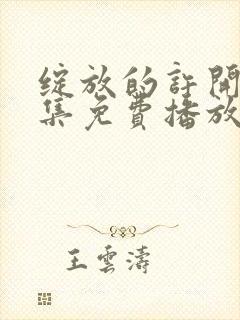 綻放的許開
集免費播放
王雲濤